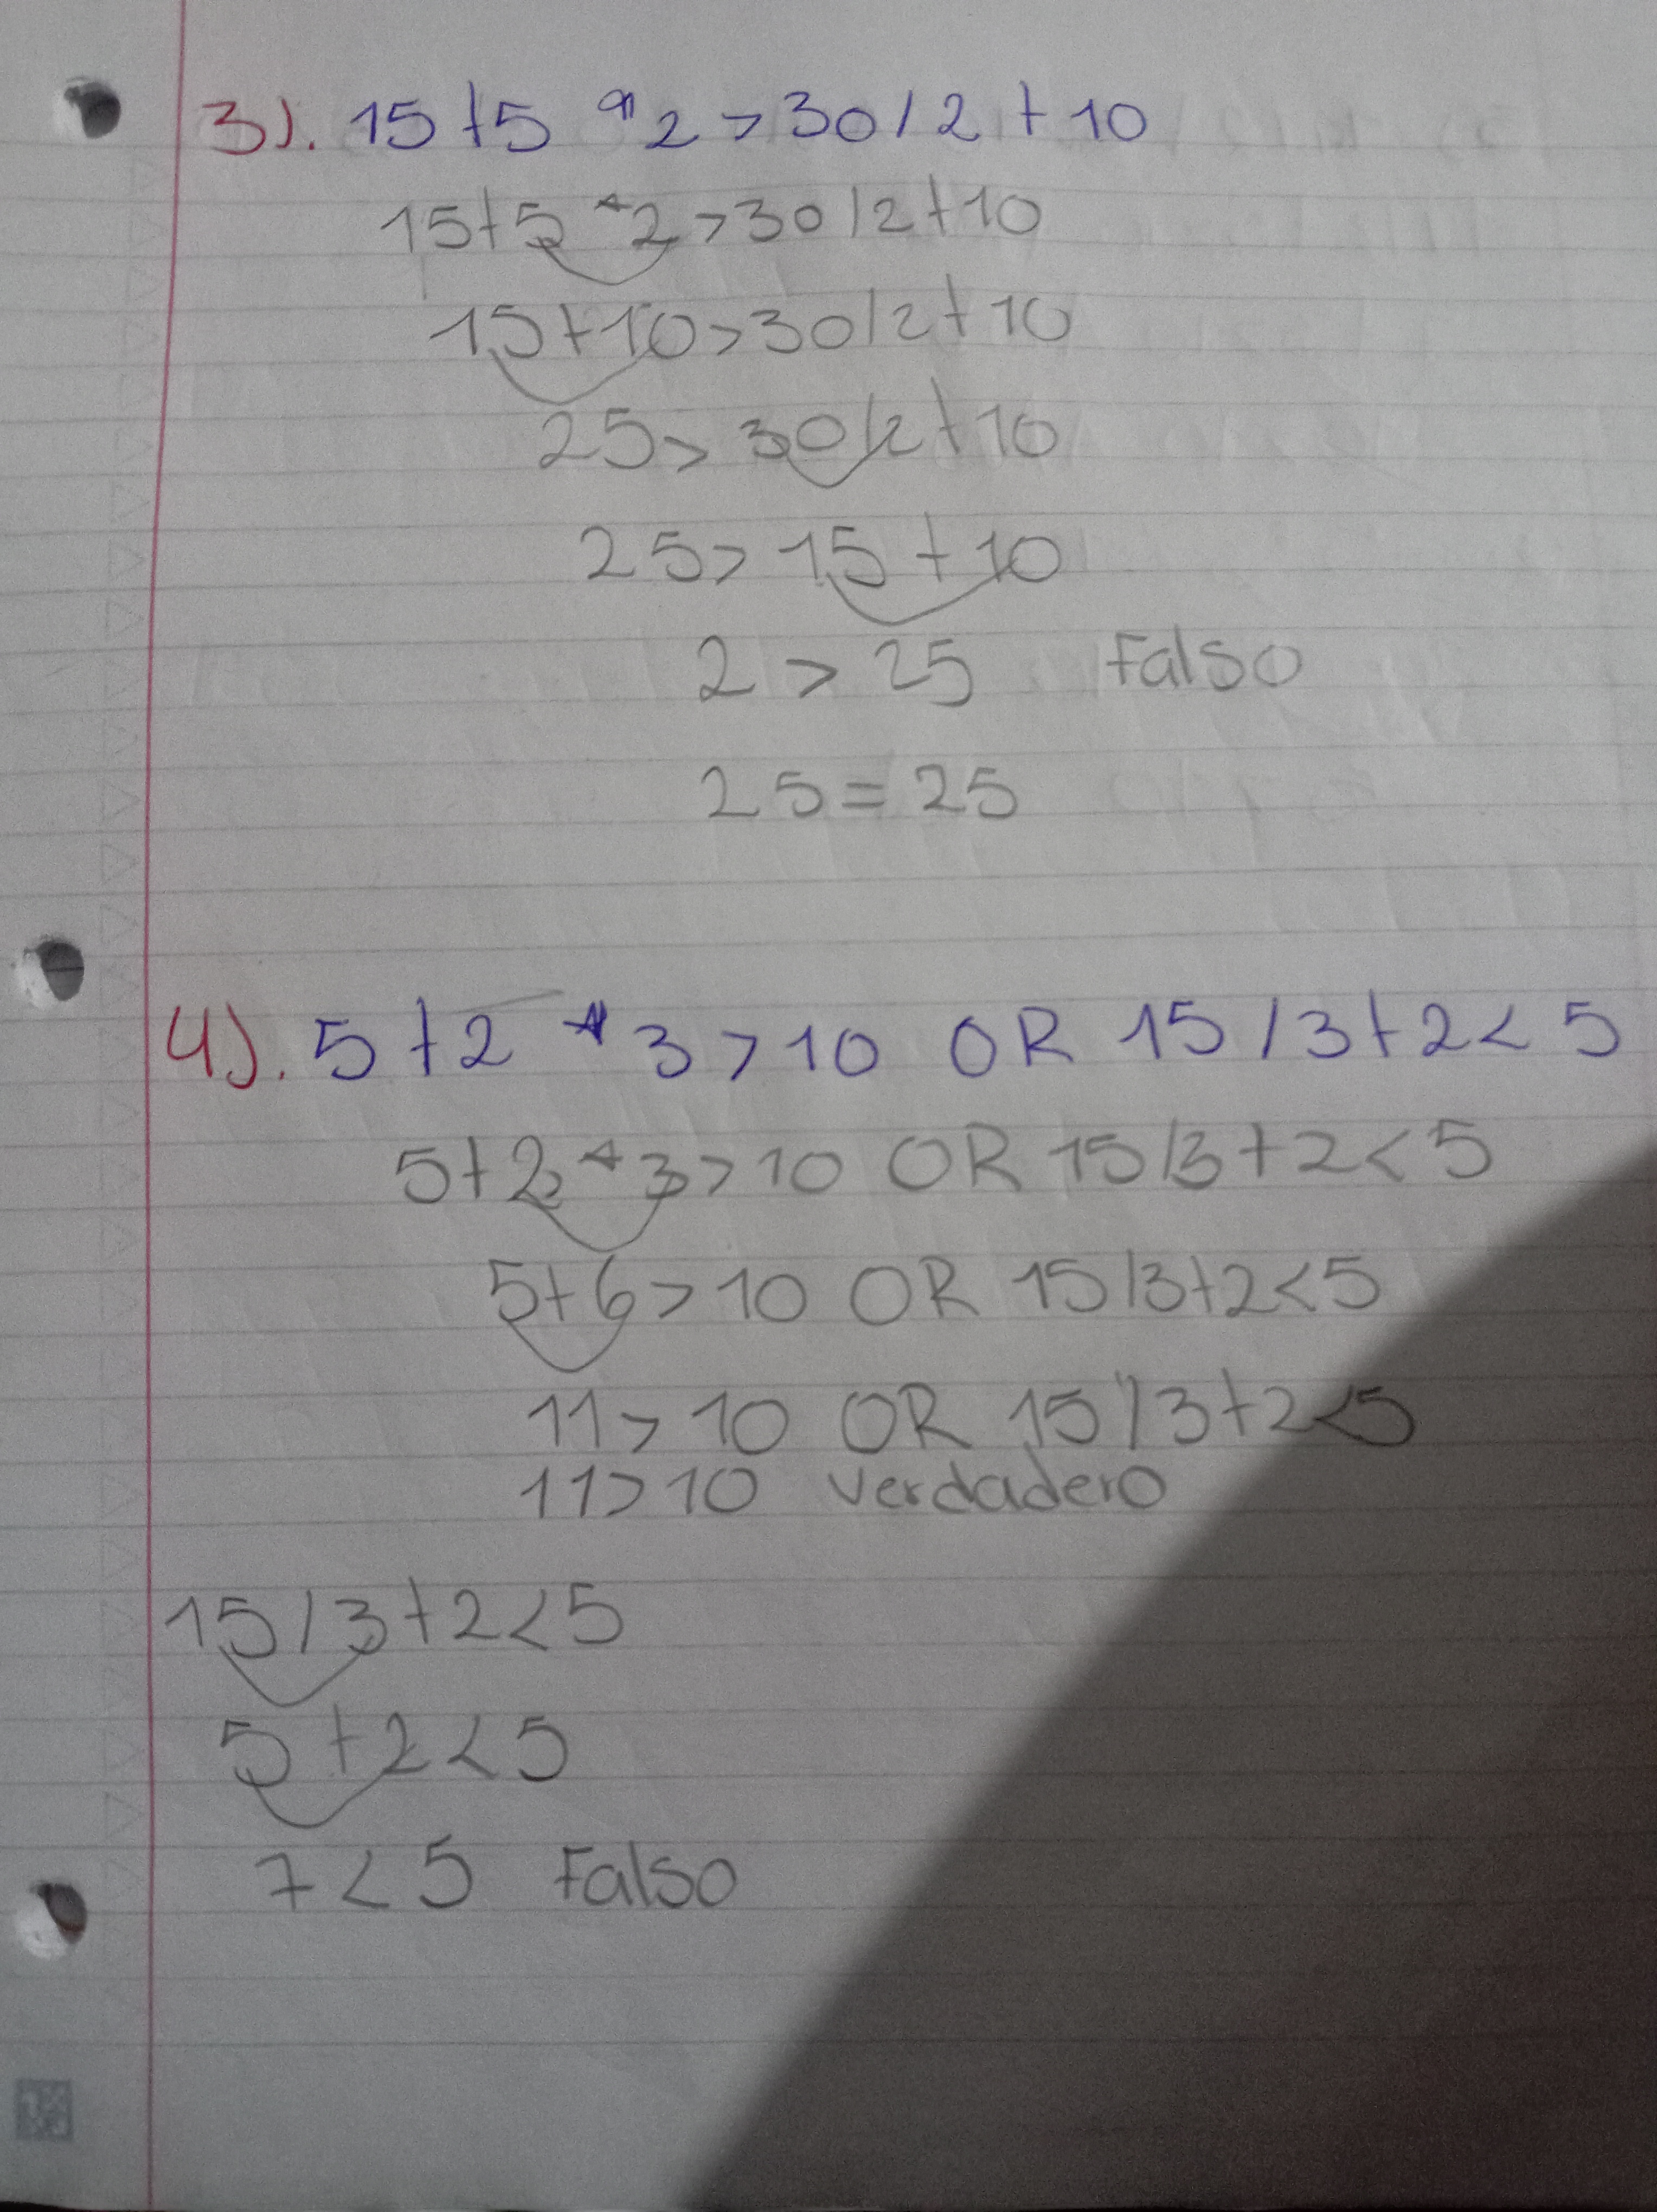 3). 15+5 * 2 > 30 / 2 + 10
15+5 * 2 > 30 / 2 + 10
15+10 > 30 / 2 + 10
25 > 30 / 2 + 10
25 > 15 + 10
2 > 25 Falso
25 = 25
4). 5 + 2 * 3 > 10 OR 15 / 3 + 2 < 5
5 + 2 * 3 > 10 OR 15 / 3 + 2 < 5
5 + 6 > 10 OR 15 / 3 + 2 < 5
11 > 10 OR 15 / 3 + 2 < 5
11 > 10 Verdadero
15 / 3 + 2 < 5
5 + 2 < 5
7 < 5 Falso